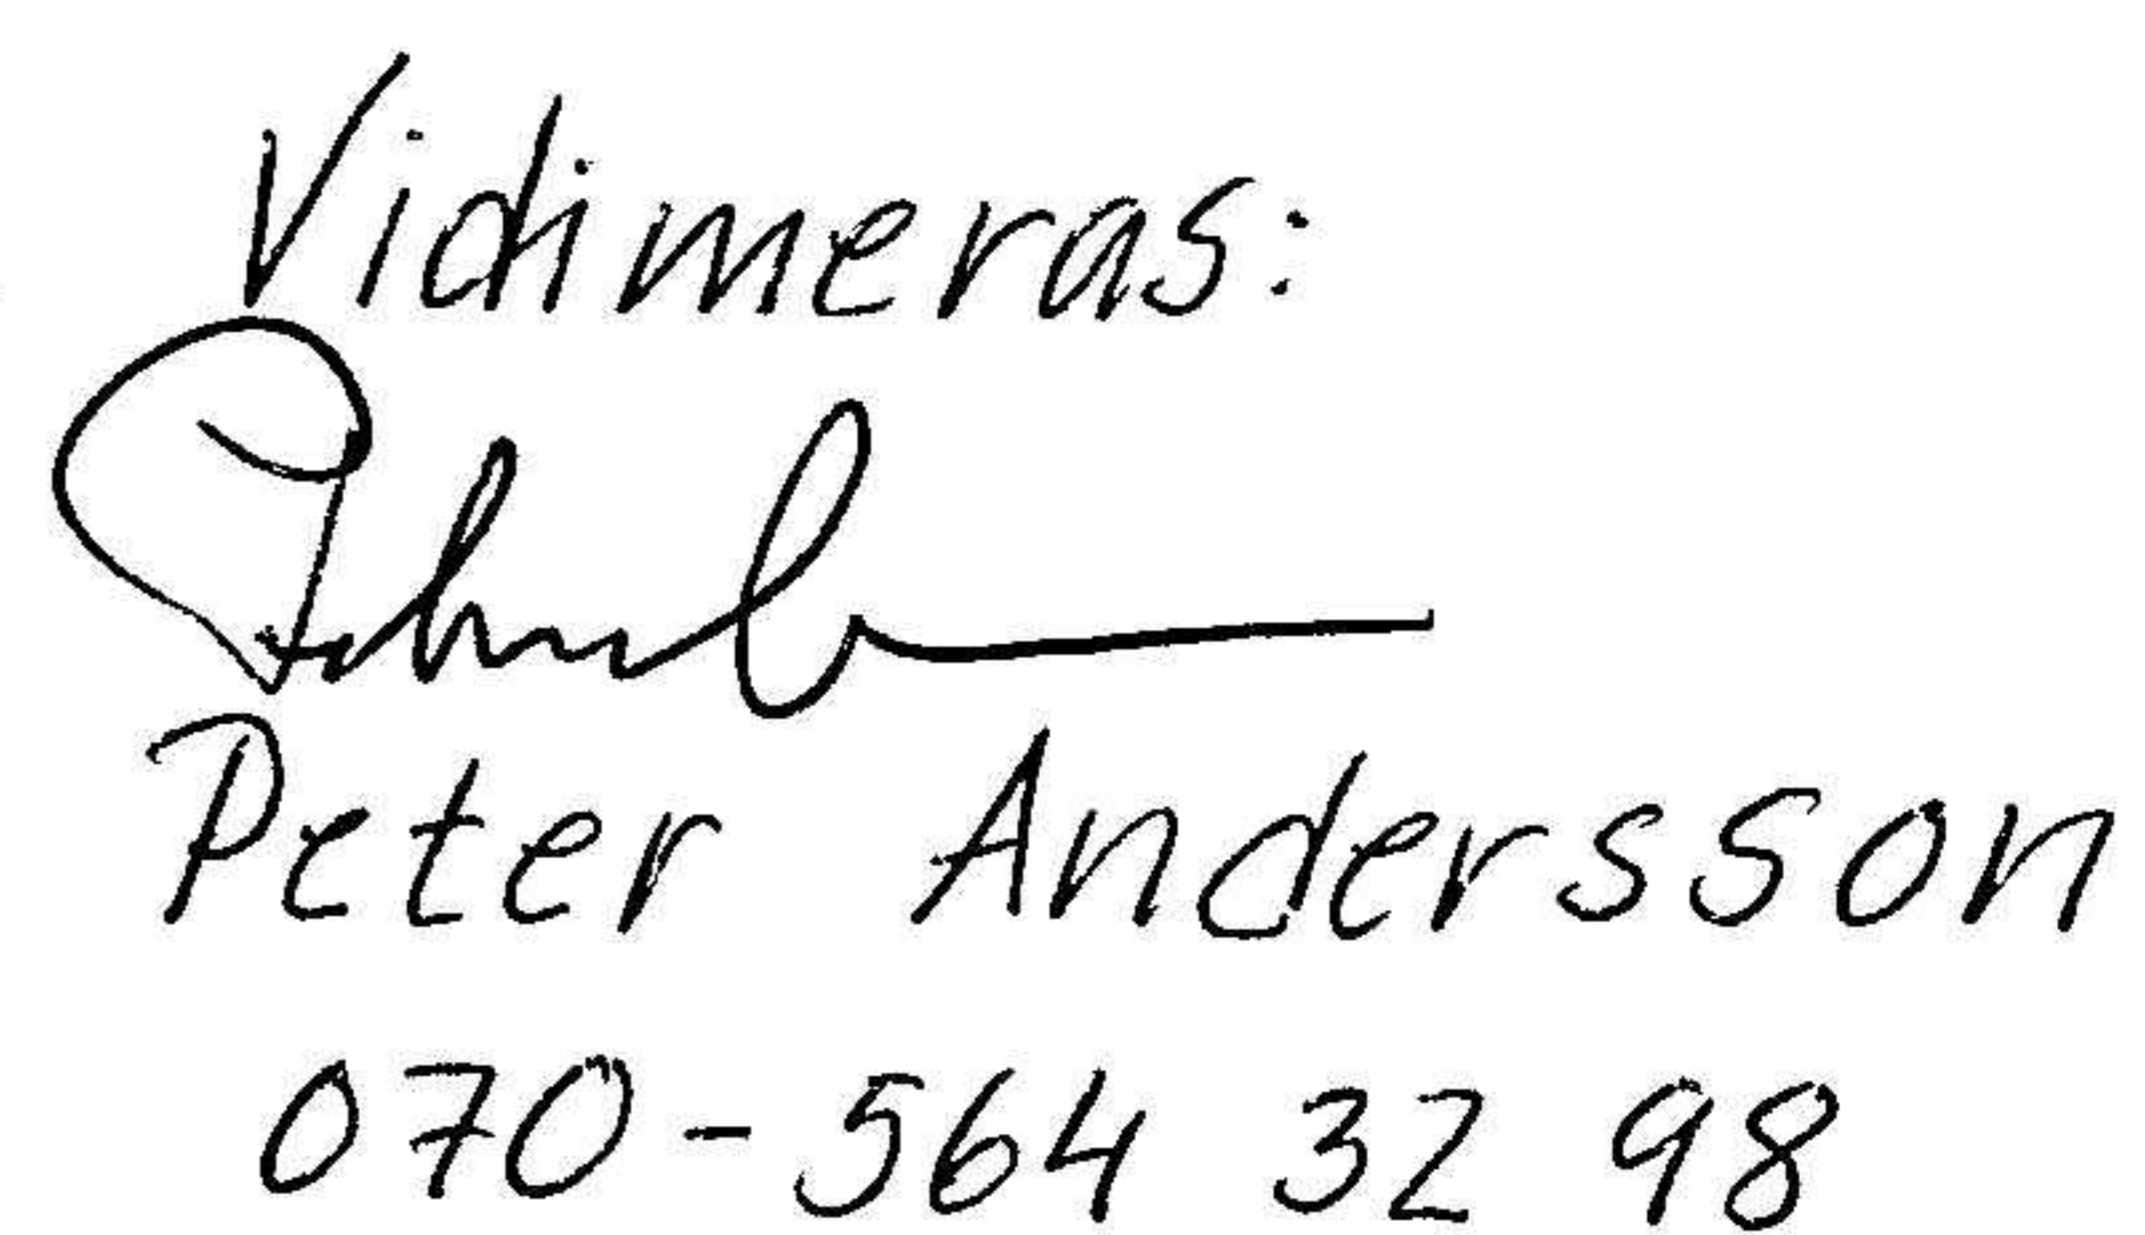 Vidimeras:
Peter Andersson
070-564 32 98